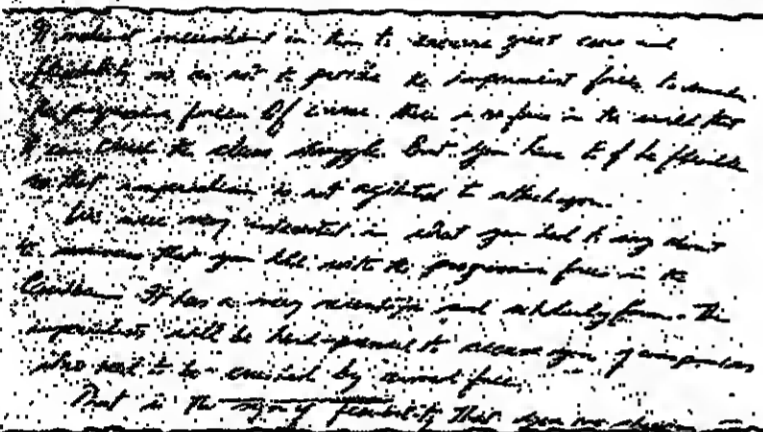 to exercise great care and
flexibility so as not to provoke the imperialist forces to smash
the progressive forces. Of course there is no force in the world that
can check the class struggle. But you have to be flexible
so that imperialism is not agitated to attack you.
We were very interested in what you had to say about
that you held with the progressive forces in the
It has a very scientific and scholarly form. The
imperialists will be hard-pressed to accuse you of
need to be crushed by armed force.
That is the sign of flexibility that you are showing